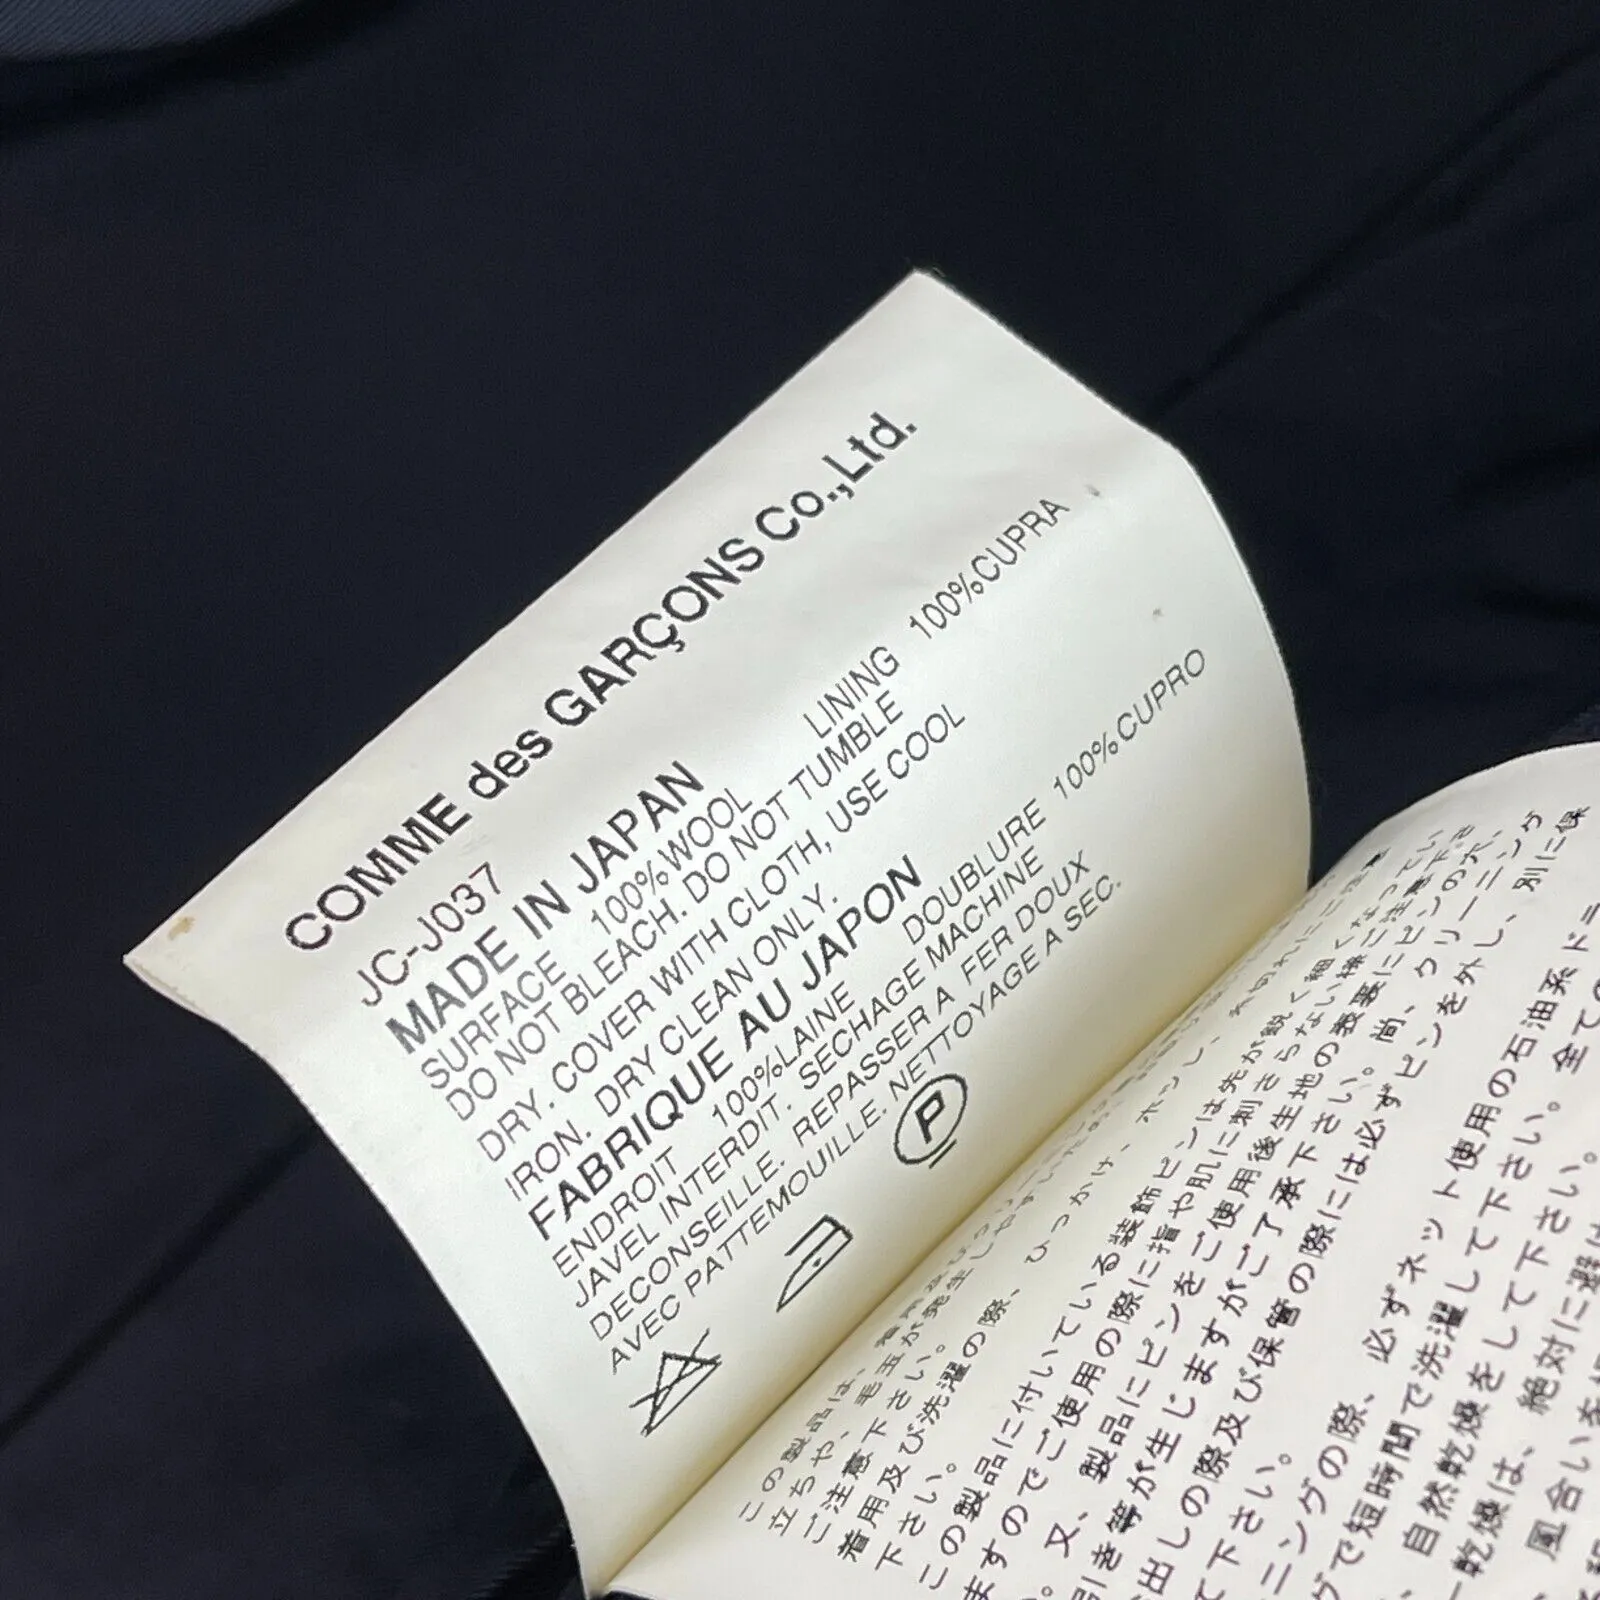 COMME des GARÇONS Co.,Ltd.
JC-J037
MADE IN JAPAN
SURFACE 100%WOOL LINING 100%CUPRA
DO NOT BLEACH. DO NOT TUMBLE
DRY. COVER WITH CLOTH, USE COOL
IRON. DRY CLEAN ONLY.
FABRIQUE AU JAPON
ENDROIT 100%LAINE DOUBLURE 100%CUPRO
JAVEL INTERDIT. SECHAGE MACHINE
DECONSEILLE. REPASSER A FER DOUX
AVEC PATTEMOUILLE. NETTOYAGE A SEC.
P
この製品は、着用及び
立ちや、毛玉が発生しやすい
ご注意下さい。
着用及び洗濯の際、ひっかけ、ホツレ、
下さい。
この製品に付いている装飾ピンは先が鋭く細くなってい
ますのでご使用の際に指や肌に刺さらない様ご注意下さ
。又、製品にピンをご使用後生地の表裏にピンの穴、
引き等が生じますがご了承下さい。尚、クリーニング
出しの際及び保管の際には必ずピンを外し、別に保
て下さい。
ニングの際、必ずネット使用の石油系ドラ
グで短時間で洗濯して下さい。全ての
、自然乾燥をして下さい。
ー乾燥は、絶対に避け
、風合いを